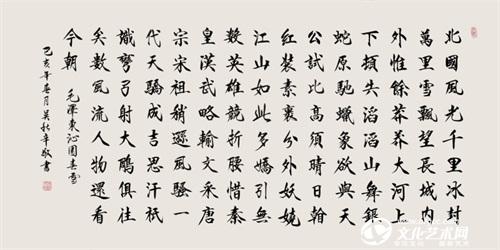 北國風光千里冰封
萬里雪飄望長城內
外惟餘莽莽大河上
下頓失滔滔山舞銀
蛇原馳蠟象欲與天
公試比高須晴日看
紅裝素裹分外妖嬈
江山如此多嬌引無
數英雄競折腰惜秦
皇漢武略輸文采唐
宗宋祖稍遜風騷一
代天驕成吉思汗祇
識彎弓射大鵰俱往
矣數風流人物還看
今朝 毛澤東沁園春雪
己亥年春月吳秋辛敬書
文化艺术网